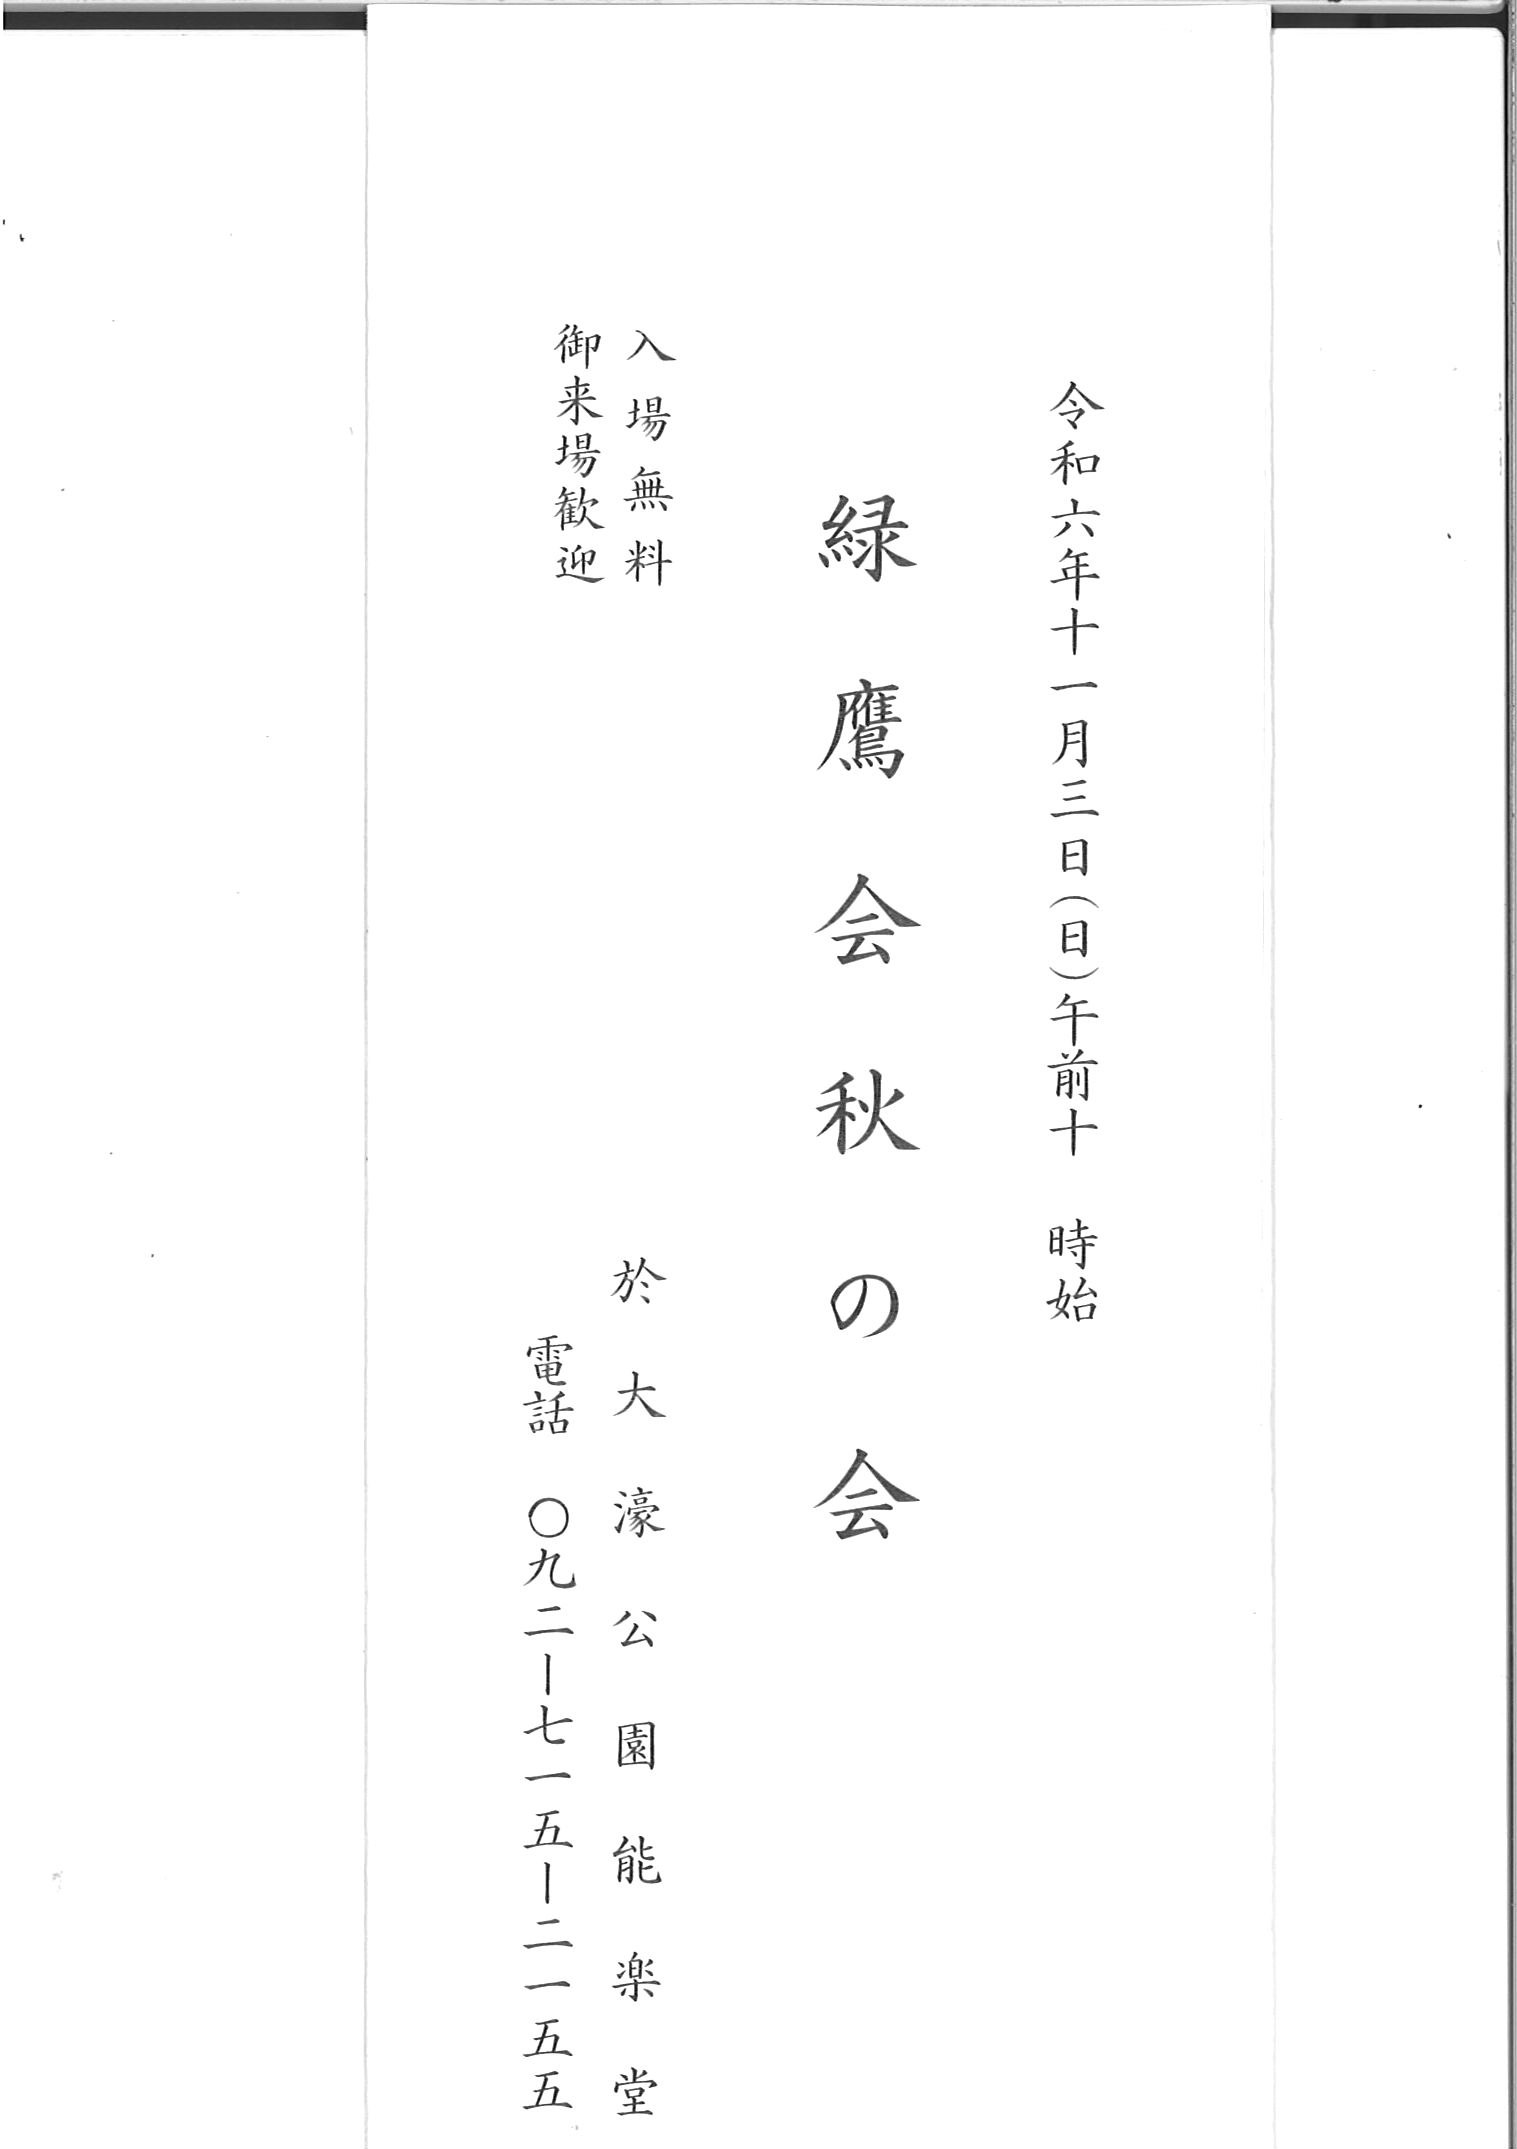 令和六年十一月三日(日)午前十 時始
緑鷹会秋の会
入場無料
御来場歓迎
於大濠公園能楽堂
電話 〇九二ー七一五ー二一五五